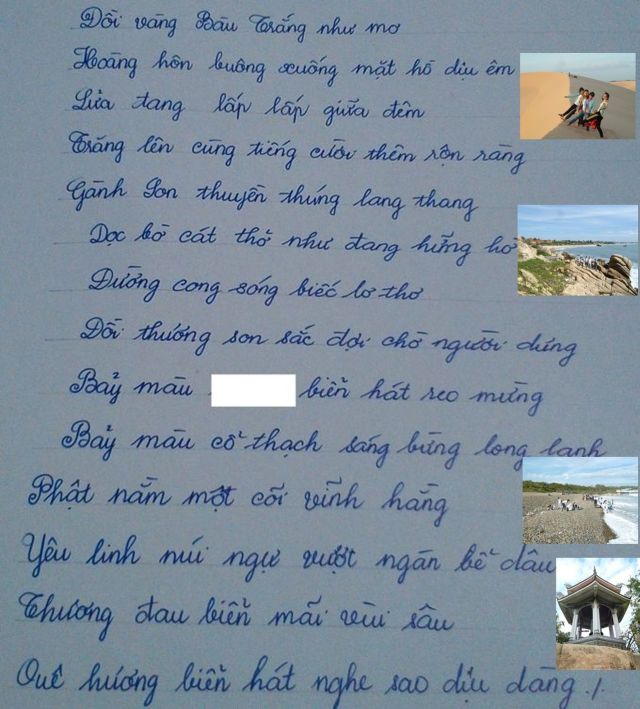 Đồi vàng Bàu Trắng như mơ
Hoàng hôn buông xuống mặt hồ dịu êm
Lửa đang lấp lấp giữa đêm
Trăng lên cùng tiếng cười thêm rộn ràng
Gành Son thuyền thúng lang thang
Dọc bờ cát thở như đang hững hờ
Đường cong sóng biếc lơ thơ
Đồi thương son sắc đợi chờ người dưng
Bảy màu biển hát reo mừng
Bảy màu cổ thạch sáng bừng long lanh
Phật nằm một cõi vĩnh hằng
Yêu linh núi ngự vượt ngàn bể dâu
Thương đau biển mãi vùi sâu
Quê hương biển hát nghe sao dịu dàng ./.